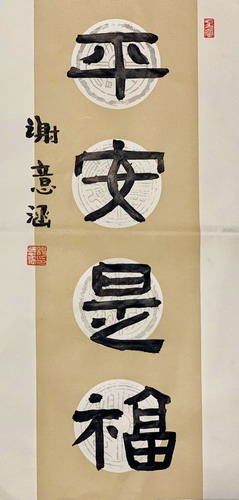 平安是福
谢意涵